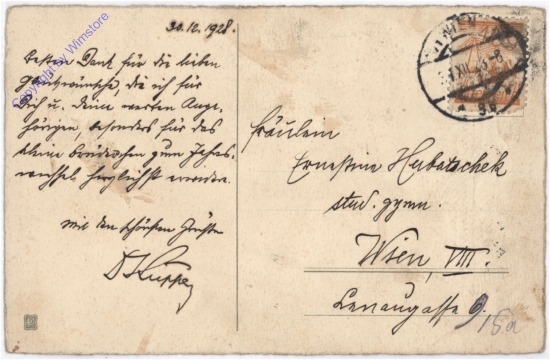 30.12.1928.
Besten Dank für die lieben
Glückwünsche, die ich für
Dich u. deine werten Ange-
hörigen, besonders für das
kleine Brüderchen zum Jahres-
wechsel herzlichst erwidere.
Mit den schönsten Grüßen
Copyright by Wimstore
WIEN
Fräulein
Ernestine Hubatschek
stud. gymn.
Wien, VIII.
Lenaugasse 9.
/15a